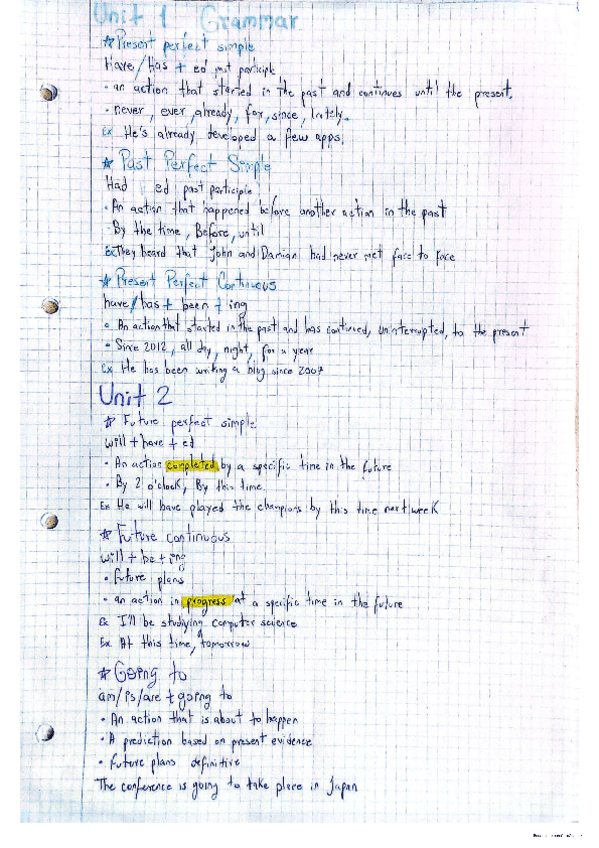 Unit 1 Grammar
☆ Present perfect simple
Have/Has + ed past participle
• an action that started in the past and continues until the present.
• never, ever, already, for, since, lately.
Ex He's already developed a few apps.
☆ Past Perfect Simple
Had ed past participle
• An action that happened before another action in the past
• By the time, Before, until
Ex They heard that John and Damian had never met face to face
☆ Present Perfect Continuous
have/has + been + ing
• An action that started in the past and has continued, uninterrupted, to the present
• Since 2012, all day, night, for a year
Ex He has been writing a blog since 2007
Unit 2
☆ Future perfect simple
will + have + ed
• An action completed by a specific time in the future
• By 2 o'clock, By this time.
Ex He will have played the champions by this time next week
☆ Future continuous
will + be + ing
• future plans
• an action in progress at a specific time in the future
Ex I'll be studiying computer science
Ex. At this time, tomorrow
☆ Going to
am/is/are + going to
• An action that is about to happen
• A prediction based on present evidence
• future plans definitive
The conference is going to take place in Japan